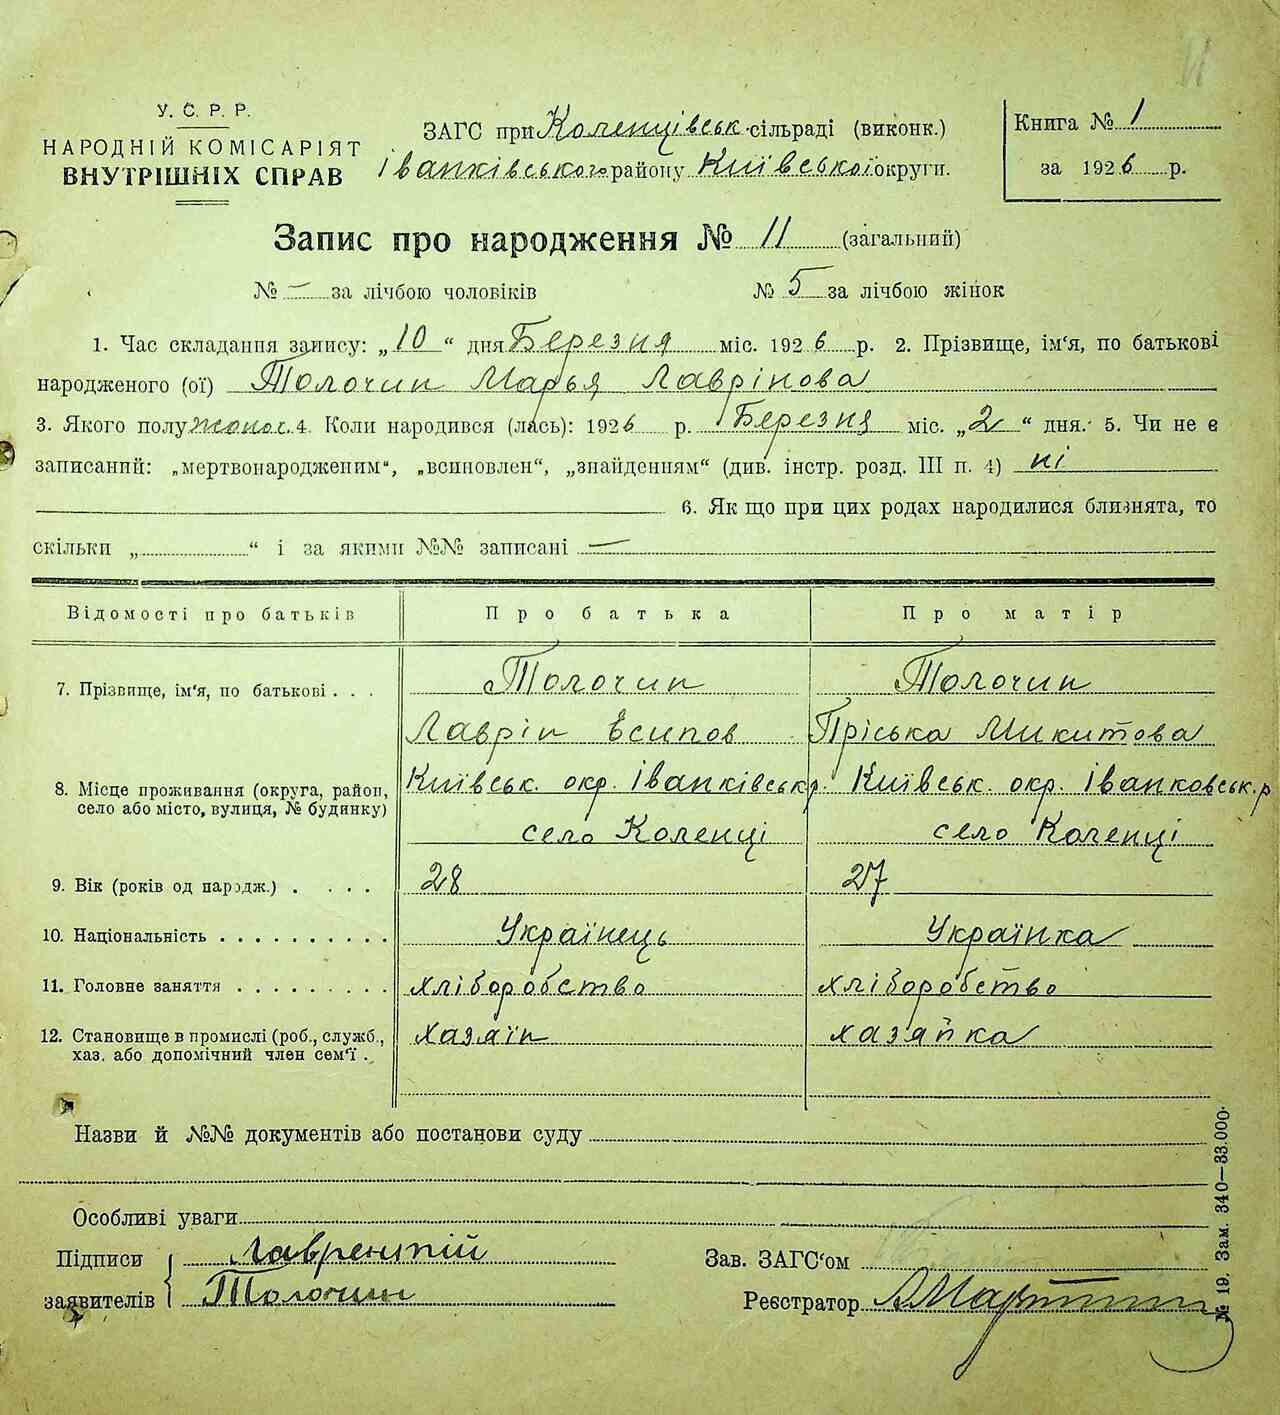 У. С. Р. Р.
НАРОДНІЙ КОМІСАРІЯТ
ВНУТРІШНІХ СПРАВ
ЗАГС при Коленцівськ. сільраді (виконк.)
Іванківського району Київської округи.
Книга № 1
за 1926 р.
Запис про народження № 11 (загальний)
№ — за лічбою чоловіків № 5 за лічбою жінок
1. Час складання запису: „10“ дня Березня міс. 1926 р. 2. Прізвище, ім'я, по батькові
народженого (ої) Толочин Марья Лаврінова
3. Якого полу жоноч. 4. Коли народився (лась): 1926 р. Березня міс. „2“ дня. 5. Чи не є
записаний: „мертвонародженим“, „всиновлен“, „знайденням“ (див. інстр. розд. III п. 4) ні
6. Як що при цих родах народилися близнята, то
скільки „ “ і за якими №№ записані —
Відомості про батьків Про батька Про матір
7. Прізвище, ім'я, по батькові . . . Толочин Толочин
Лаврін Єсипов Пріська Микитова
8. Місце проживання (округа, район, Київськ. окр. Іванківськ р. Київськ. окр. Іванковськ. р
село або місто, вулиця, № будинку)
село Коленці село Коленці
9. Вік (років од народж.) . . . . 28 27
10. Національність . . . . . . . . . . Українець Українка
11. Головне заняття . . . . . . . . . хліборобство хліборобство
12. Становище в промислі (роб., служб., хазяїн хазяйка
хаз. або допомічний член сем'ї .
Назви й №№ документів або постанови суду
Особливі уваги
Підписи Лаврентій
заявителів Толочин
Зав. ЗАГС'ом
Реєстратор
№ 19. Зам. 340—33.000.